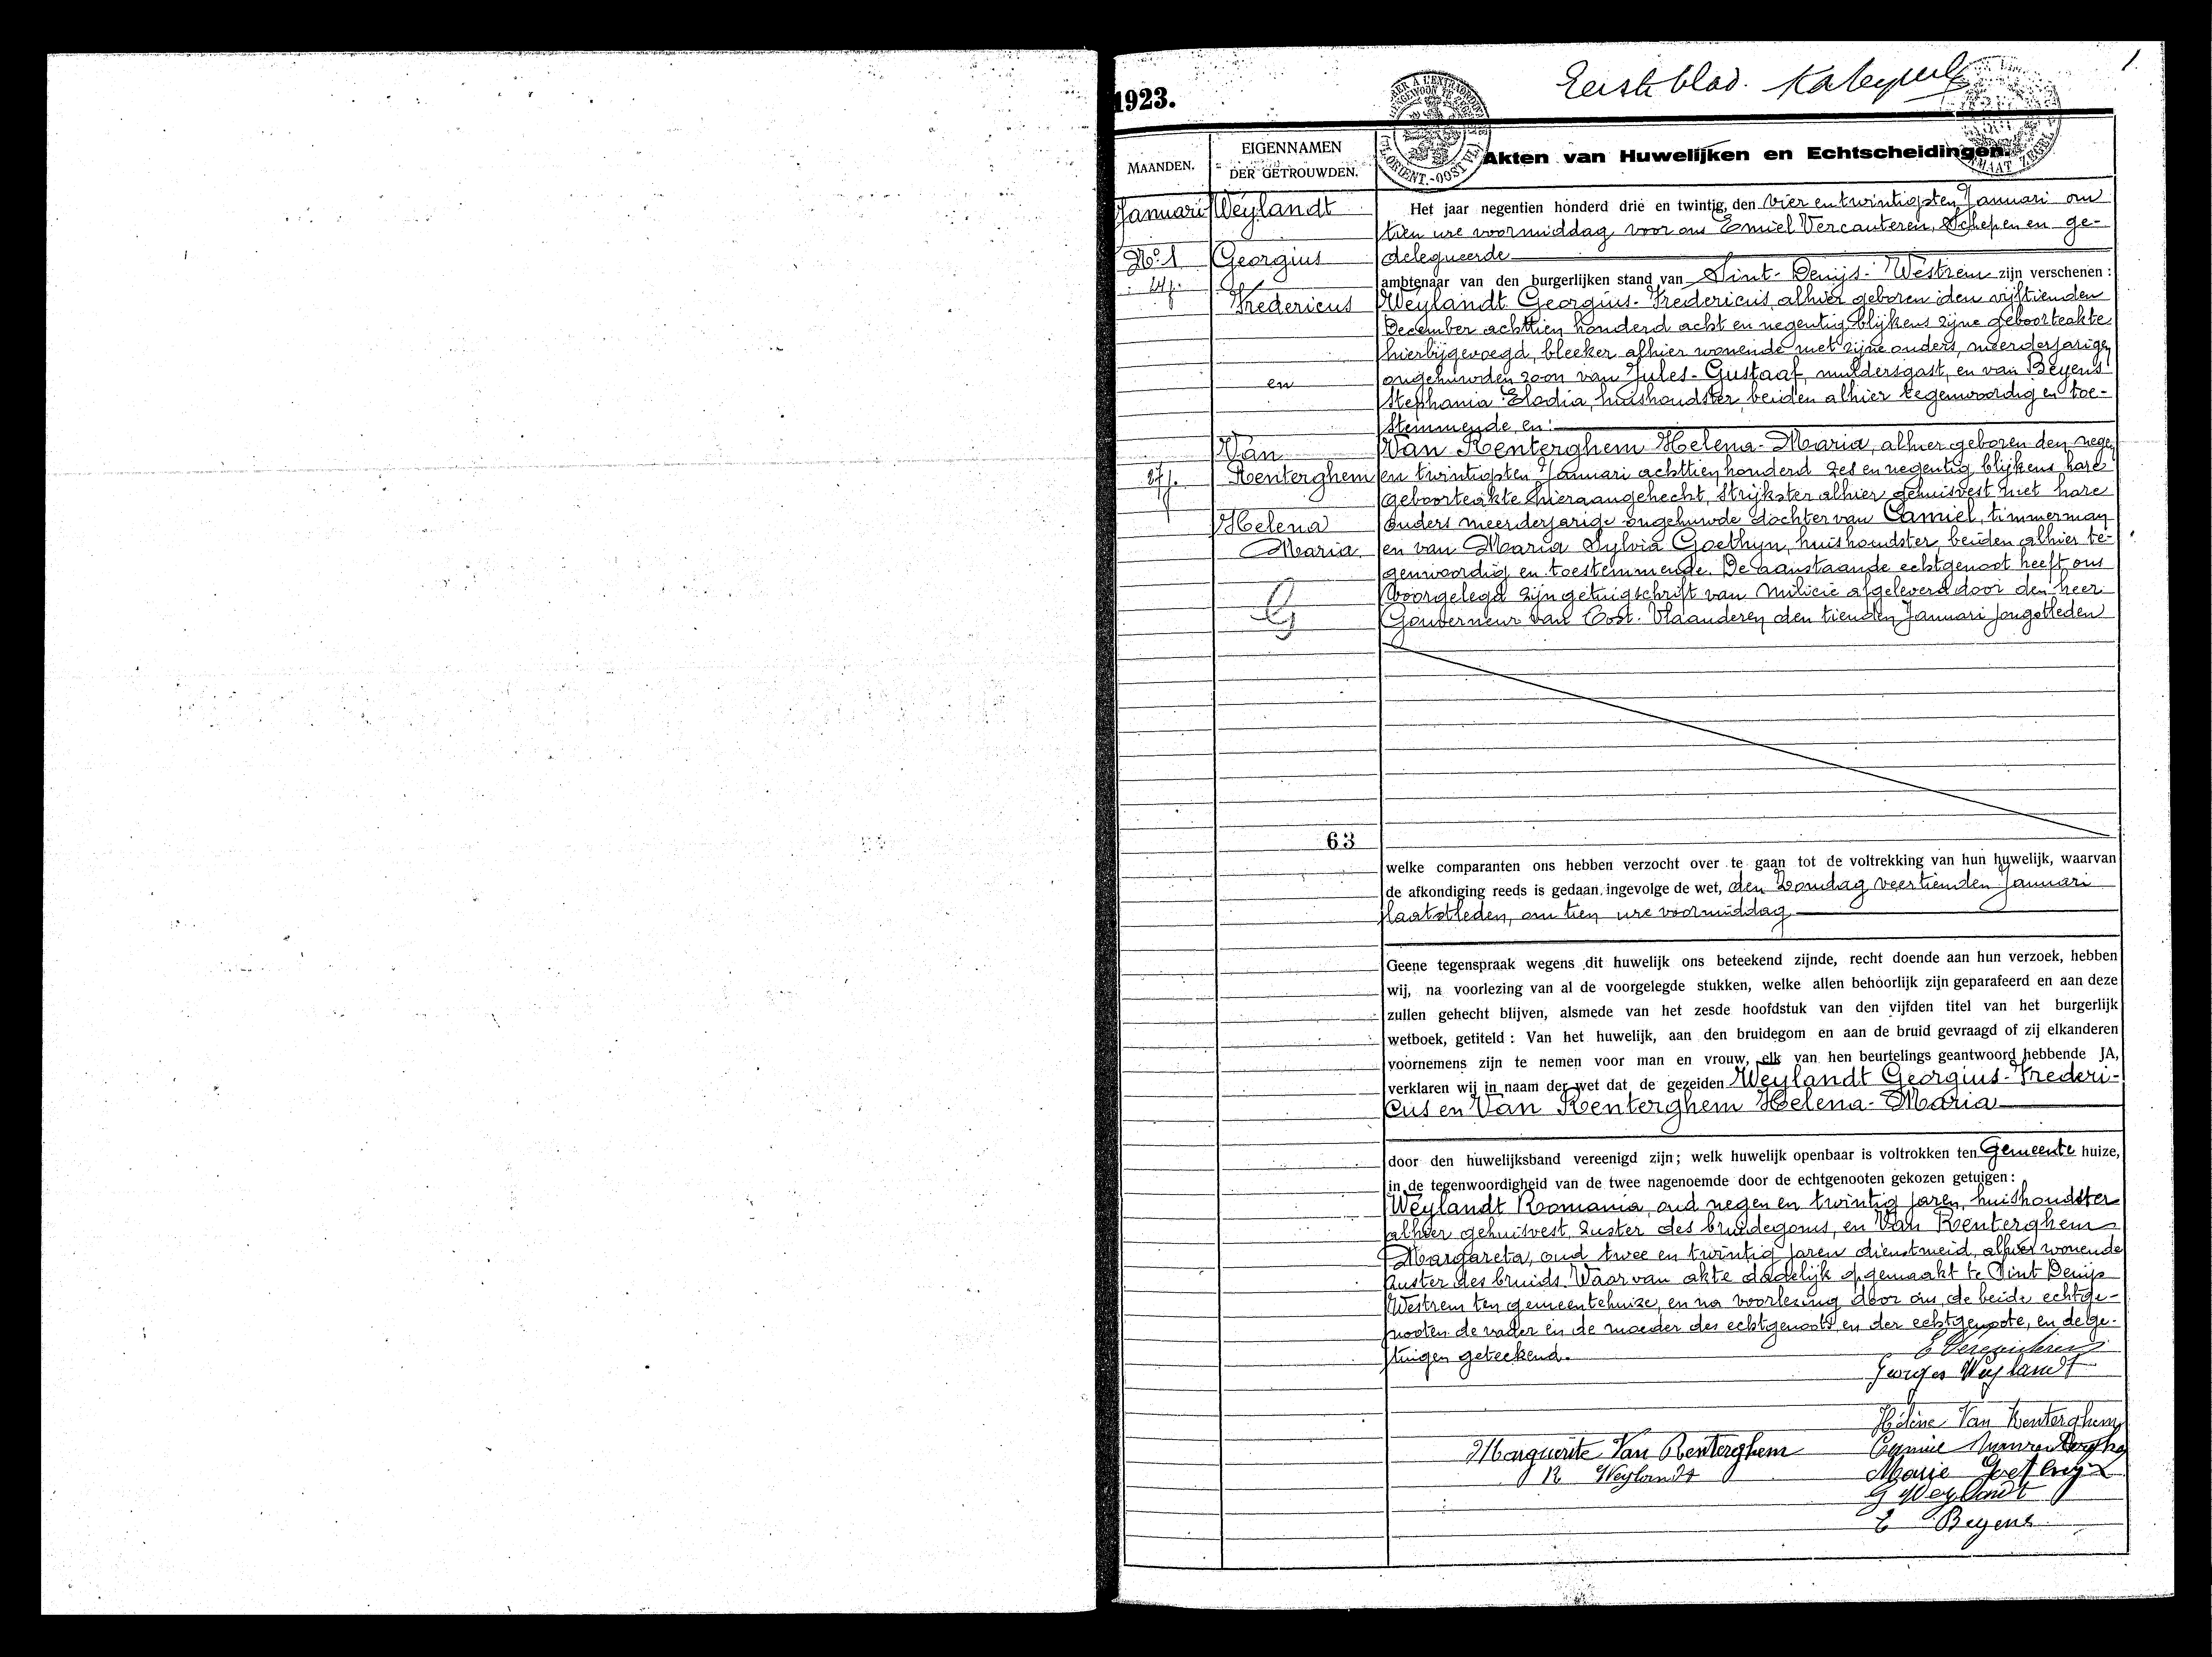 1923.
Eerste blad.
1
MAANDEN.
EIGENNAMEN
DER GETROUWDEN.
Akten van Huwelijken en Echtscheidingen.
Januari
Nº 1
24 j.
27 j.
Weylandt
Georgius
Fredericus
en
Van
Renterghem
Helena
Maria
63
Het jaar negentien honderd drie en twintig, den vier en twintigsten Januari om
tien ure voormiddag voor ons Emiel Vercauteren, Schepen en ge-
delegueerde
ambtenaar van den burgerlijken stand van Sint-Denijs-Westrem zijn verschenen :
Weylandt Georgius-Fredericus, alhier geboren den vijftienden
December achttien honderd acht en negentig blijkens zijne geboorteakte
hierbijgevoegd, bleeker alhier wonende met zijne ouders, meerderjarigen
ongehuwden zoon van Jules-Gustaaf, muldersgast, en van Beyens
Stephania Elodia, huishoudster, beiden alhier tegenwoordig en toe-
stemmende, en:
Van Renterghem Helena-Maria, alhier geboren den negen
en twintigsten Januari achttien honderd zes en negentig blijkens hare
geboorteakte hieraangehecht, Strijkster alhier gehuisvest met hare
ouders meerderjarige ongehuwde dochter van Camiel, timmerman
en van Maria Sylvia Goethyn, huishoudster, beiden alhier te-
genwoordig en toestemmende. De aanstaande echtgenoot heeft ons
voorgelegd zijn getuigschrift van milicie afgeleverd door den heer
Gouverneur van Oost-Vlaanderen den tienden Januari jongstleden
welke comparanten ons hebben verzocht over te gaan tot de voltrekking van hun huwelijk, waarvan
de afkondiging reeds is gedaan ingevolge de wet, den Zondag veertienden Januari
laatstleden, om tien ure voormiddag
Geene tegenspraak wegens dit huwelijk ons beteekend zijnde, recht doende aan hun verzoek, hebben
wij, na voorlezing van al de voorgelegde stukken, welke allen behoorlijk zijn geparafeerd en aan deze
zullen gehecht blijven, alsmede van het zesde hoofdstuk van den vijfden titel van het burgerlijk
wetboek, getiteld : Van het huwelijk, aan den bruidegom en aan de bruid gevraagd of zij elkanderen
voornemens zijn te nemen voor man en vrouw, elk van hen beurtelings geantwoord hebbende JA,
verklaren wij in naam der wet dat de gezeiden Weylandt Georgius-Frederi-
cus en Van Renterghem Helena-Maria
door den huwelijksband vereenigd zijn; welk huwelijk openbaar is voltrokken ten Gemeente huize,
in de tegenwoordigheid van de twee nagenoemde door de echtgenooten gekozen getuigen :
Weylandt Romania, oud negen en twintig jaren, huishoudster
alhier gehuisvest, zuster des bruidegoms, en Van Renterghem
Margareta, oud twee en twintig jaren dienstmeid, alhier wonende
zuster des bruids. Waarvan akte dadelijk opgemaakt te Sint Denijs
Westrem ten gemeentehuize, en na voorlezing door ons, de beide echtge-
nooten de vader en de moeder des echtgenoots en der echtgenoote, en de ge-
tuigen geteekend.
E Vercauteren
Georges Weylandt
Hélène Van Renterghem
Marguerite Van Renterghem
R Weylandt
Marie Goethyn
G Weylandt
E Beyens